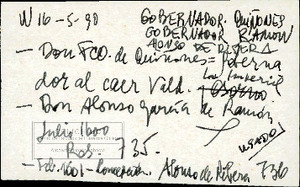 W 16-5-90 GOBERNADOR QUIÑONES
GOBERNADOR RAMON
ALONSO DE RIBERA
— Don Fco. de Quiñones = Gobernador al caer Vald. La Imperial
Osorno
— Don Alonso García de Ramón
Julio 1600
Ros. 735.
USADO
— Feb. 1601 - Concepción. Alonso de Ribera 736